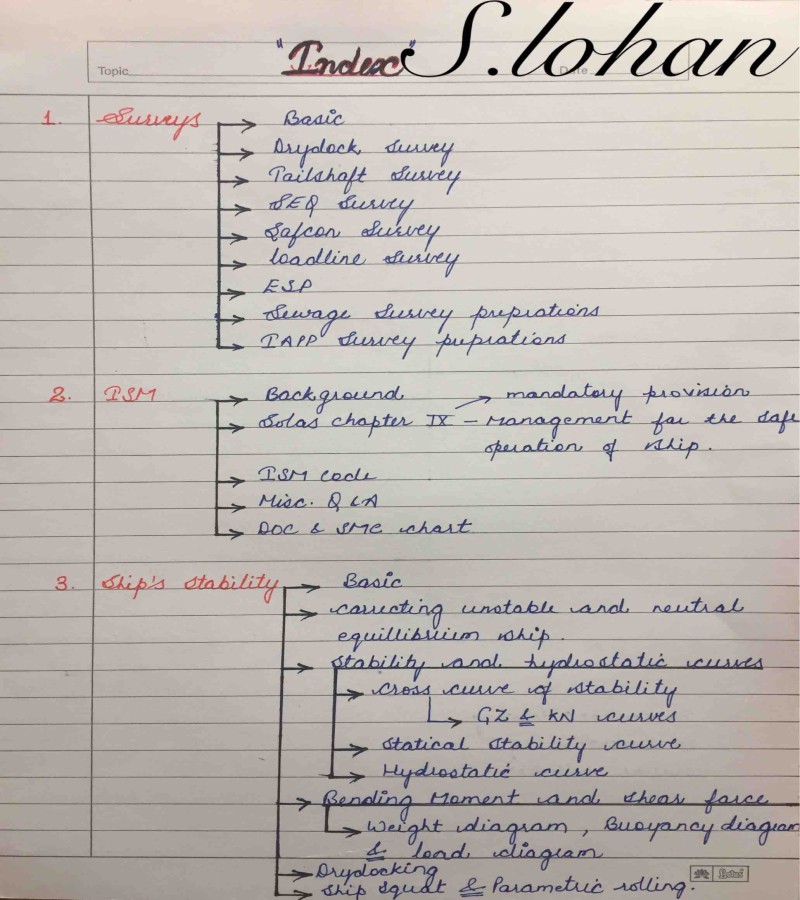 "Index" S.lohan
Topic Date
1. Surveys → Basic
→ Drydock Survey
→ Tailshaft Survey
→ SEQ Survey
→ Safcon Survey
→ loadline Survey
→ ESP
→ Sewage Survey preprations
→ IAPP Survey puprations
2. ISM → Background → mandatory provision
→ Solas chapter IX – Management for the safe
operation of ship.
→ ISM code
→ Misc. Q & A
→ DOC & SMC chart
3. Ship's stability → Basic
→ correcting unstable and neutral
equillibrium ship.
→ stability and hydrostatic curves
→ cross curve of stability
→ GZ & KN curves
→ statical stability curve
→ Hydrostatic curve
→ Bending Moment and shear force
→ Weight diagram, Buoyancy diagram
& load diagram
→ Drydocking
→ Ship squat & Parametric rolling.